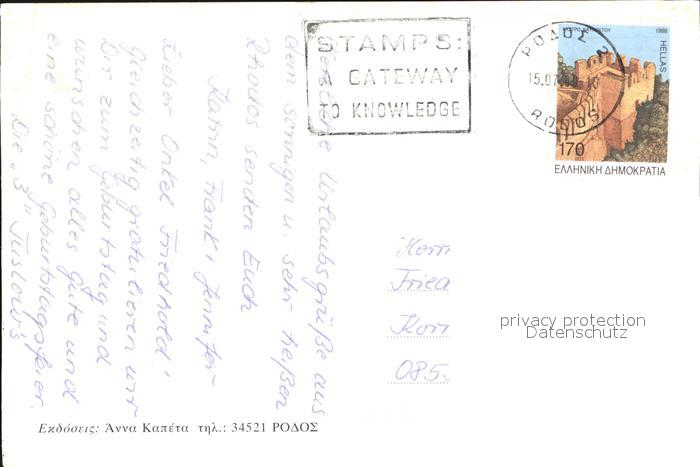 Herzliche Urlaubsgrüße aus
dem sonnigen u. sehr heißen
Rhodos senden Euch
Katrin, Frank + Jennifer
Lieber Onkel Friedhold!
Gleichzeitig gratulieren wir
Dir zum Geburtstag und
wünschen alles Gute und
eine schöne Geburtstagsfeier.
Die "3"
STAMPS:
GATEWAY
TO KNOWLEDGE
ΡΟΔΟΣ 2
15.07
RODOS
1998
HELLAS
170
ΕΛΛΗΝΙΚΗ ΔΗΜΟΚΡΑΤΙΑ
Herrn
Fried
085.
privacy protection
Datenschutz
Εκδόσεις: Άννα Καπέτα τηλ.: 34521 ΡΟΔΟΣ